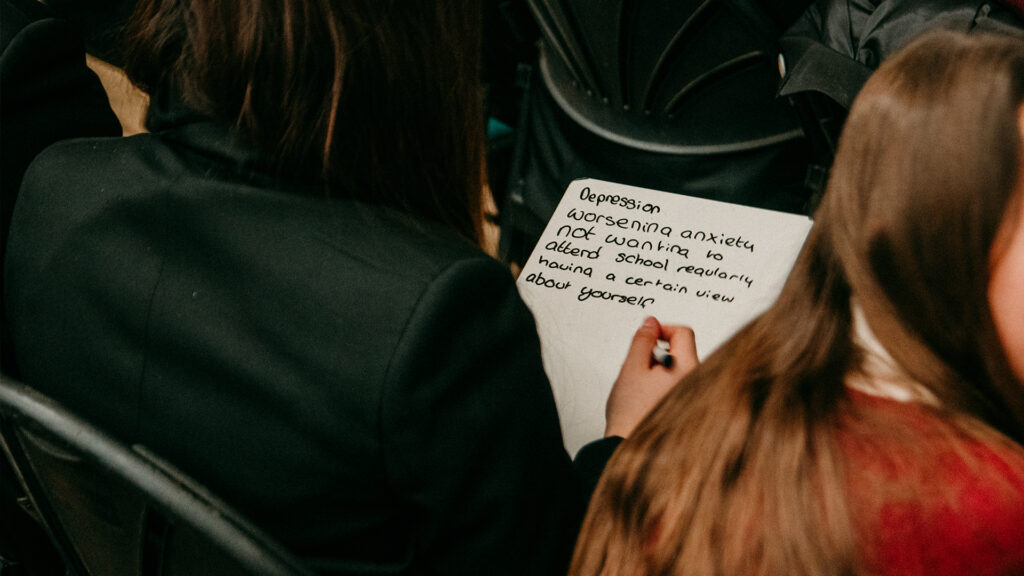 Depression
worsening anxiety
not wanting to
attend school regularly
having a certain view
about yourself